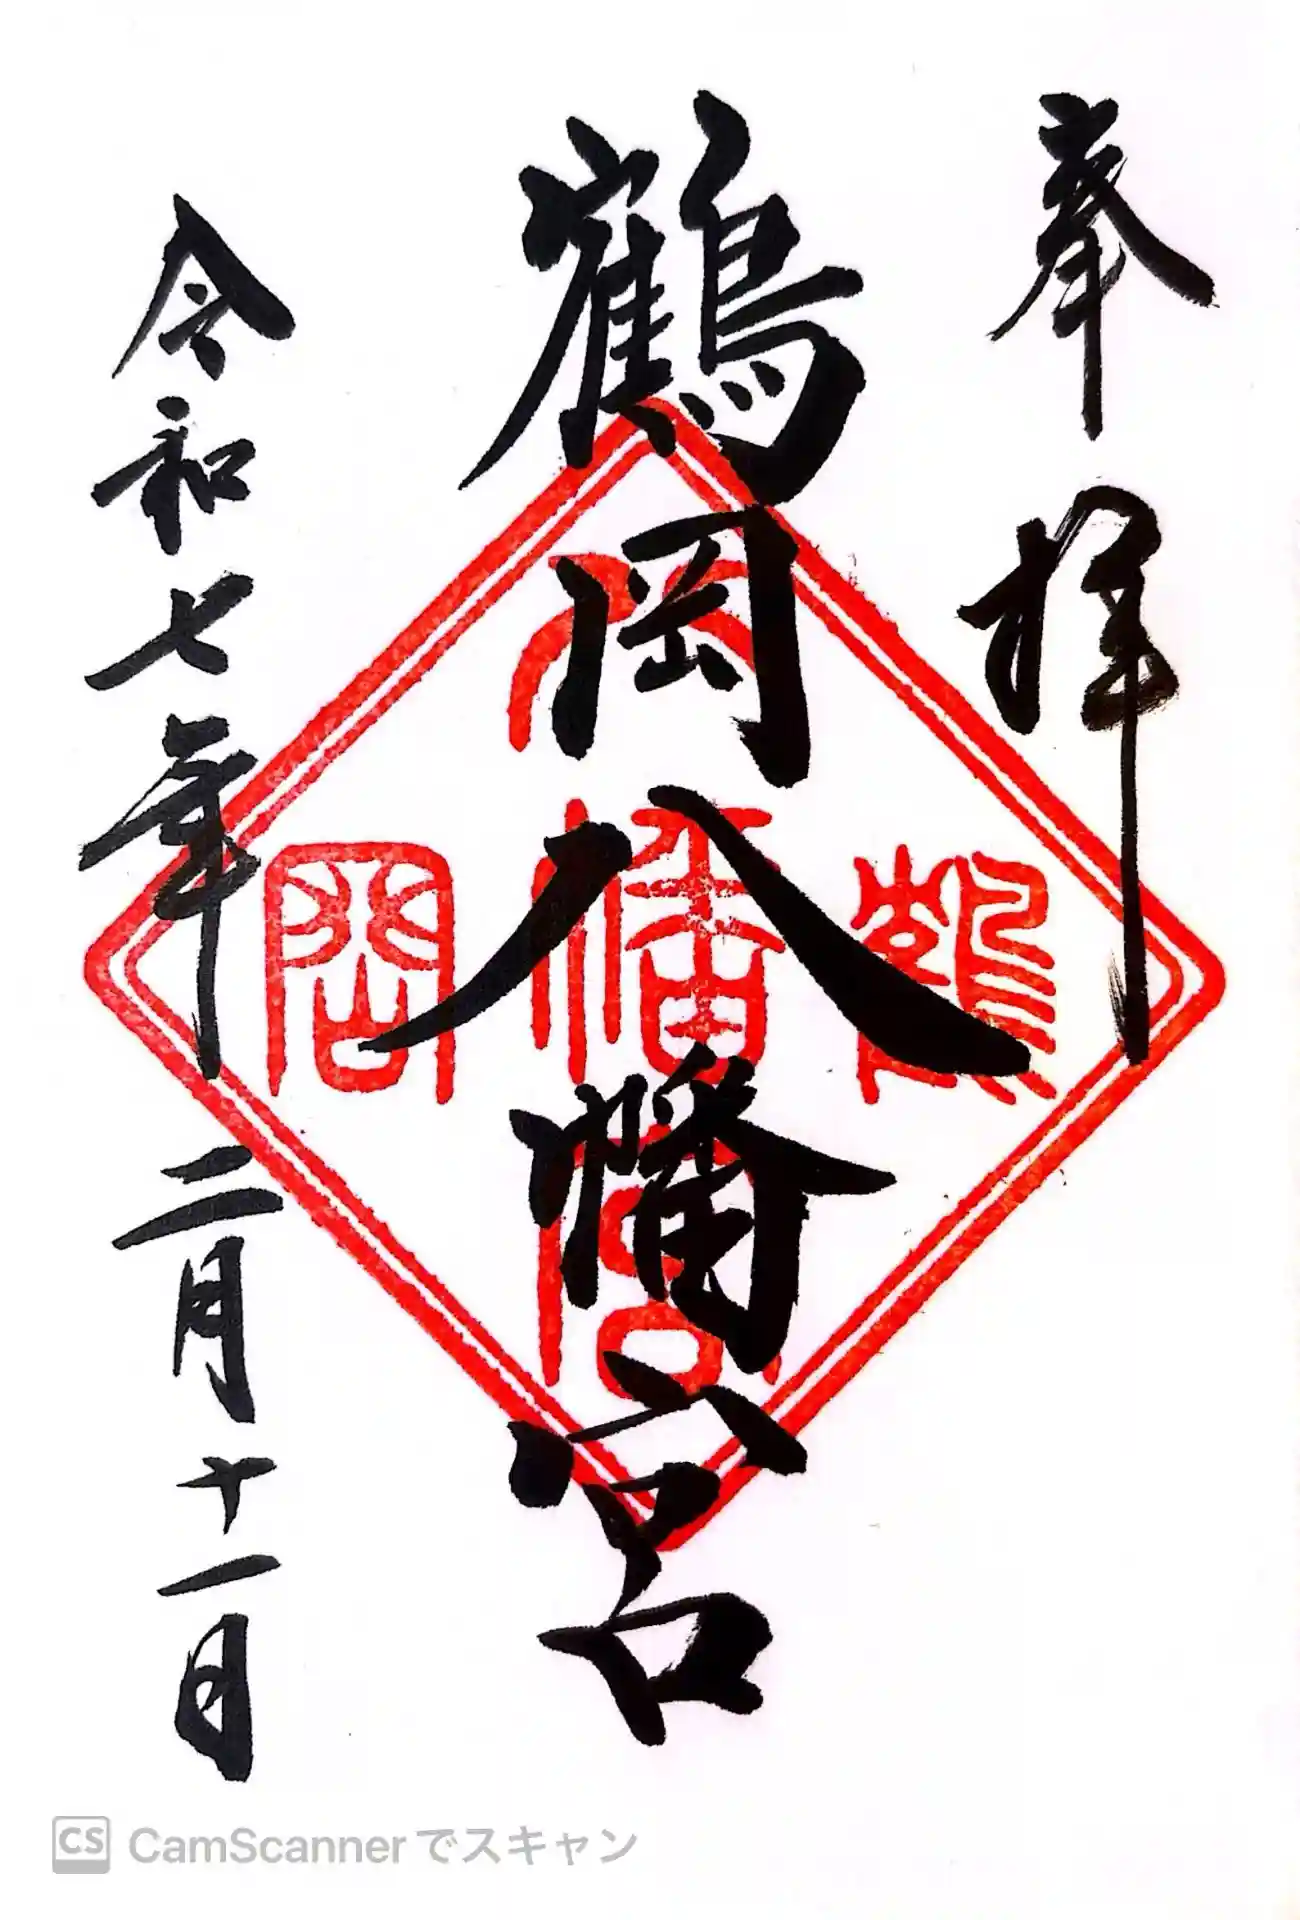 奉拝
鶴岡八幡宮
令和七年二月十一日
八幡宮
鶴
岡
CS CamScannerでスキャン